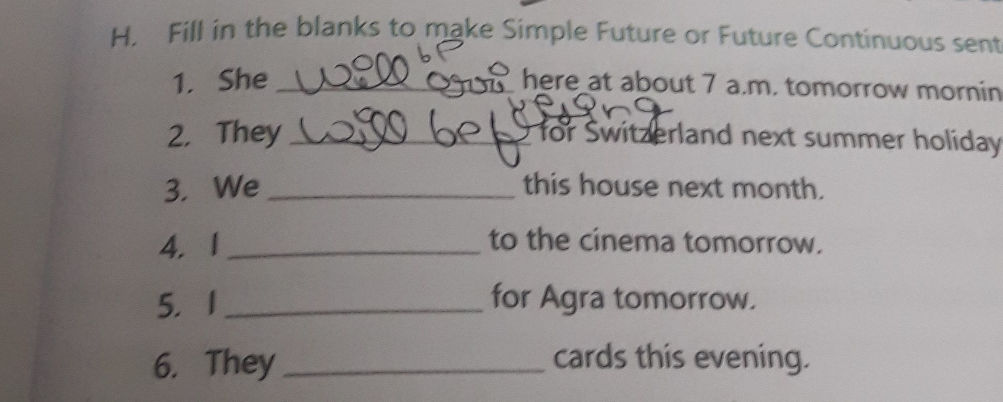 H. Fill in the blanks to make Simple Future or Future Continuous sent
1. She will be here at about 7 a.m. tomorrow mornin
2. They will be for Switzerland next summer holiday
3. We ____________ this house next month.
4. I ____________ to the cinema tomorrow.
5. I ____________ for Agra tomorrow.
6. They ____________ cards this evening.